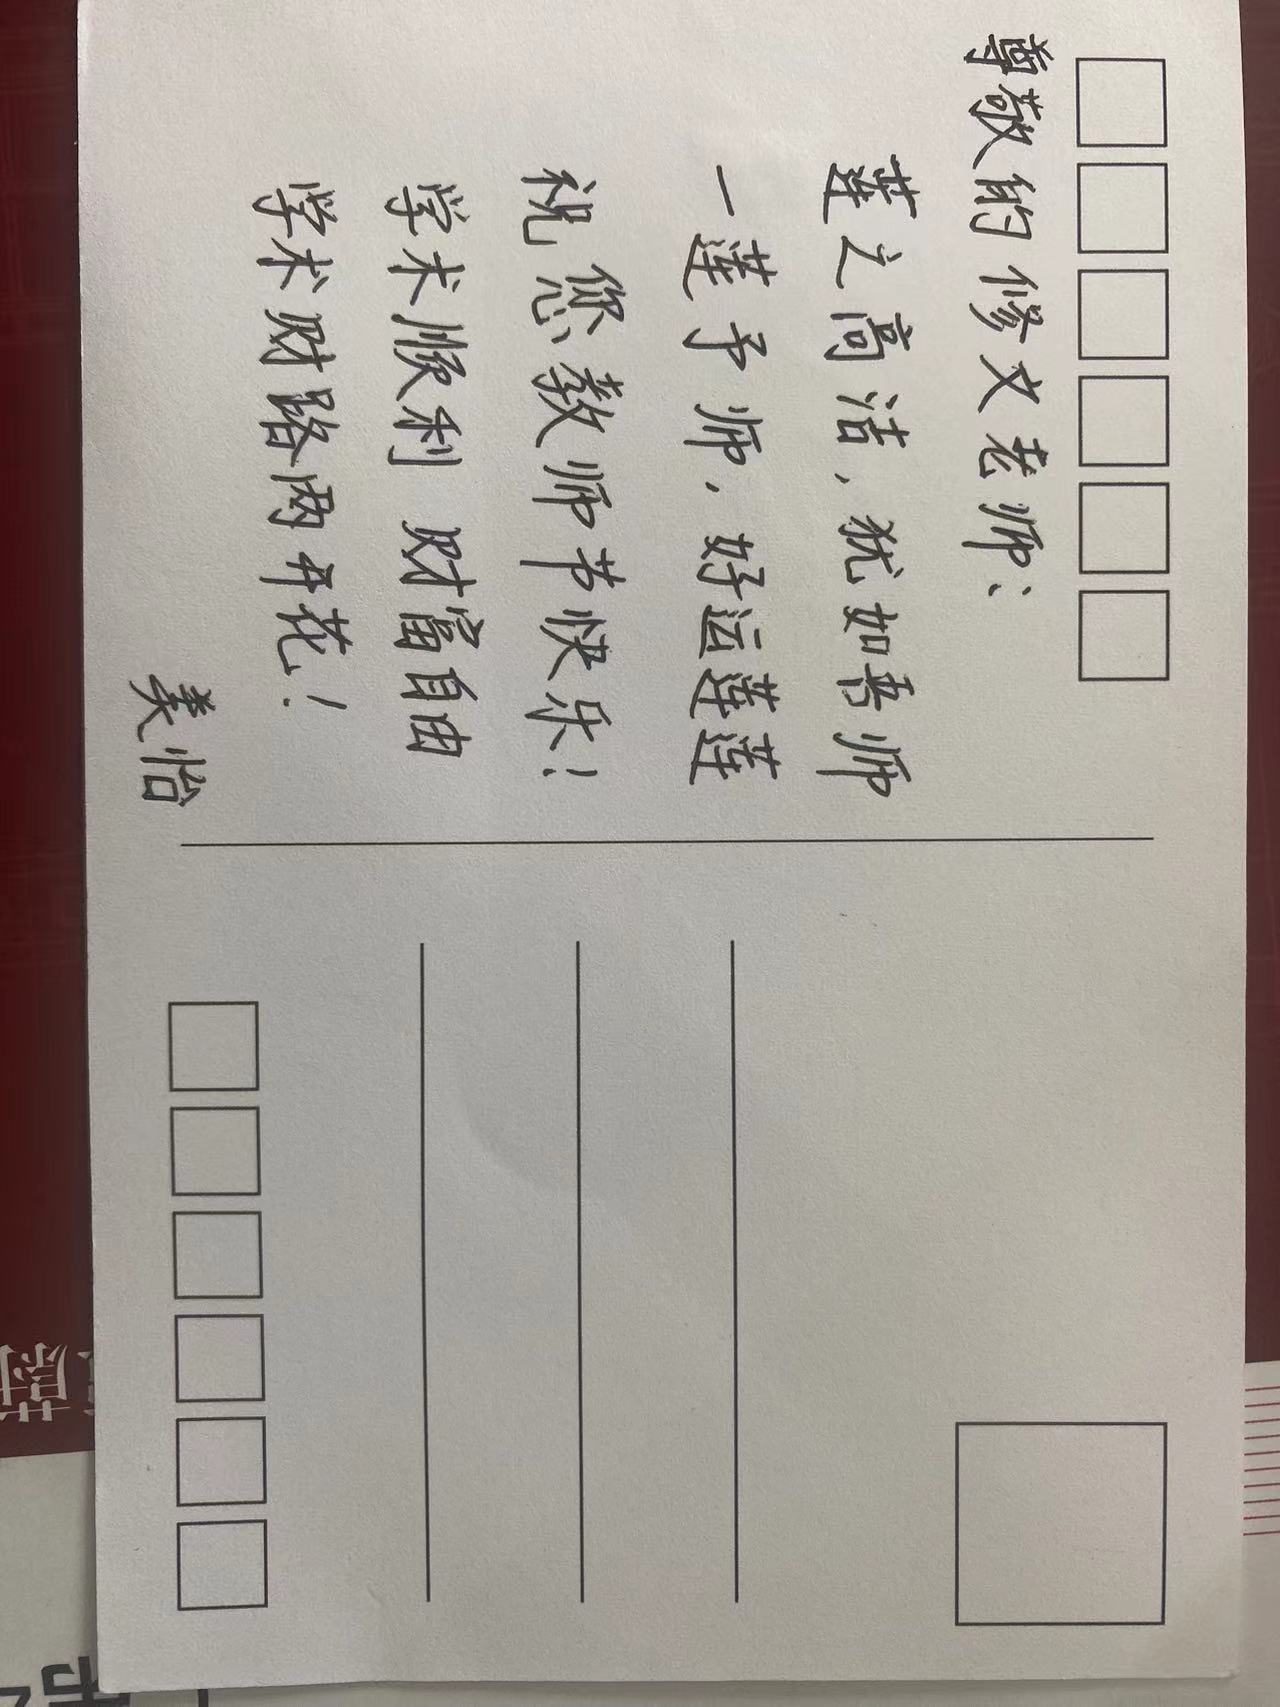 尊敬的修文老师：
莲之高洁，犹如吾师
一莲予师，好运莲莲
祝您教师节快乐！
学术顺利 财富自由
学术财路两开花！
美怡